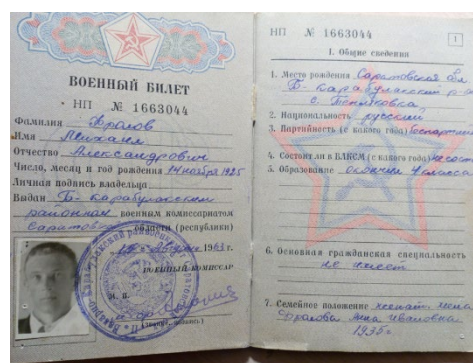 ВОЕННЫЙ БИЛЕТ
НП № 1663044
Фамилия Фролов
Имя Михаил
Отчество Александрович
Число, месяц и год рождения 14 ноября 1925
Личная подпись владельца
Выдан Б-Карабулакским
районным военным комиссариатом
Саратовской области (республики)
августа 1963 г.
ВОЕННЫЙ КОМИССАР
М. П.
НП № 1663044
1
I. Общие сведения
1. Место рождения Саратовская обл
Б-Карабулакский р-н
с.
2. Национальность русский
3. Партийность (с какого года) беспартийн
4. Состоял ли в ВЛКСМ (с какого года) не сост
5. Образование окончил 4 класса
6. Основная гражданская специальность
не имеет
7. Семейное положение женат: жена
Фролова Анна Ивановна
1935г.